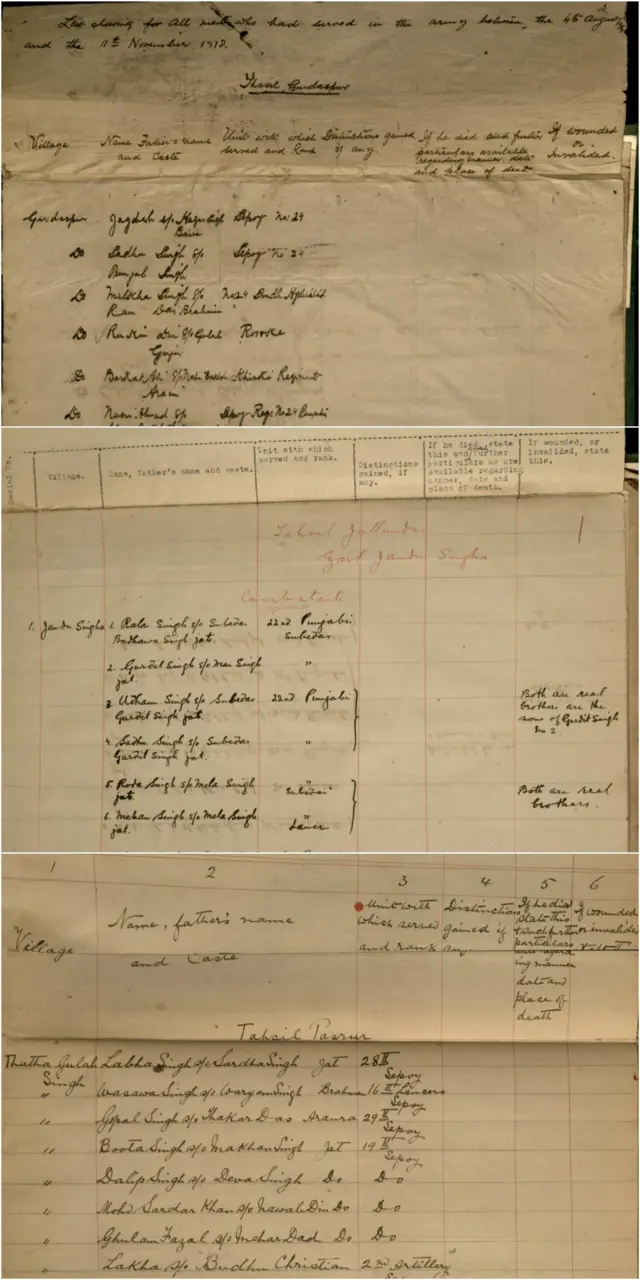 List showing for all men who had served in the army between the 4th August
and the 11th November 1918.
Thesil Gurdaspur
Village Name Father's name and Caste Unit with which served and Rank Distinctions gained if any. If he died stated further particulars available regarding manner, date and place of death If wounded or Invalided.
Gurdaspur Jagdish s/o Sepoy No. 24
Do Sadha Singh s/o Sepoy No 24
Singh
Do Milkha Singh s/o No 24
Ram Das Brahmin
Do Din s/o Gulab
Gujar
Do Barkat Ali s/o Regiment
Arain
Do Ahmad s/o Sepoy No 24 Punjabi
Serial No.
Village. Name, father's name and caste. Unit with which served and rank. Distinctions gained, if any. If he died, state this and further particulars as are available regarding manner, date and place of death. If wounded, or invalided, state this.
Tahsil Jullundur 1
Jandu Singha
Combatant
1. Jandu Singha 1. Rala Singh s/o Subedar 22nd Punjabi
Badhawa Singh jat. Subedar
2. Gurdit Singh s/o Man Singh "
jat.
3. Udham Singh s/o Subedar 22nd Punjabi Both are real
Gurdit Singh jat. brothers are the
sons of Gurdit Singh
No 2.
4. Sadhu Singh s/o Subedar "
Gurdit Singh jat.
5. Roda Singh s/o Mela Singh " Both are real
jat. Subedar brothers.
6. Mehan Singh s/o Mela Singh "
jat.
1 2 3 4 5 6
Village Name, father's name and Caste Unit with which served and rank Distinctions gained if any If he died state this & such further particulars regarding manner date and place of death If wounded or invalided
Tahsil Pasrur
Thatha Gulab Labha Singh s/o Sardha Singh Jat 28th
Singh Sepoy
" Wasawa Singh s/o Waryam Singh Brahman 16th Lancers
Sepoy
" Gopal Singh s/o Thakar Das Araura 29th
Sepoy
" Boota Singh s/o Makhan Singh Jat 19th
Sepoy
" Dalip Singh s/o Deva Singh Do Do
" Mohd Sardar Khan s/o Nawab Din Do Do
" Ghulam Fazal s/o Mehar Dad Do Do
" Lakha s/o Budhu Christian 2nd Artillery
Sepoy